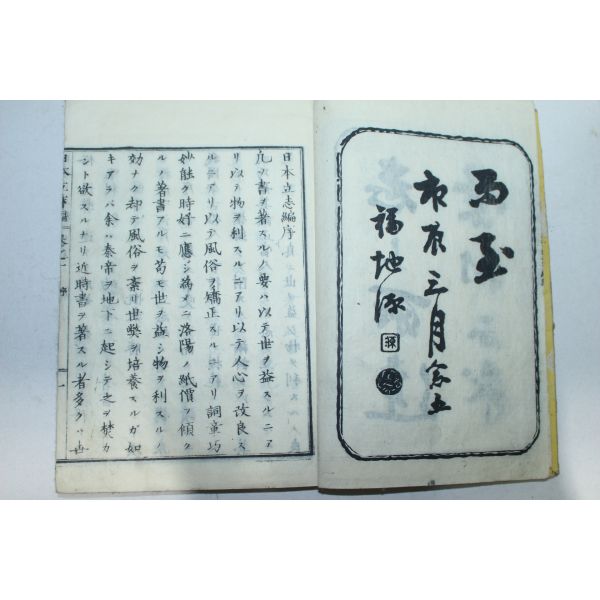 市辰三月
福地源
日本立志編序
凡ソ書ヲ著スルノ要ハ以テ世ヲ益スルニア
リ以テ物ヲ利スルニアリ以テ人心ヲ改良ス
ルニアリ以テ風俗ヲ矯正スルニアリ詞章巧
妙能ク時好ニ應シ為メニ洛陽ノ紙價ヲ傾ク
ルノ著書アルモ苟モ世ヲ益シ物ヲ利スルノ
効ナク却テ風俗ヲ紊リ世弊ヲ培養スルガ如
キアラバ余ハ秦帝ヲ地下ニ起シテ之ヲ焚カ
ント欲スルナリ近時書ヲ著スル者多クハ世
日本立志編 卷之一 序 一